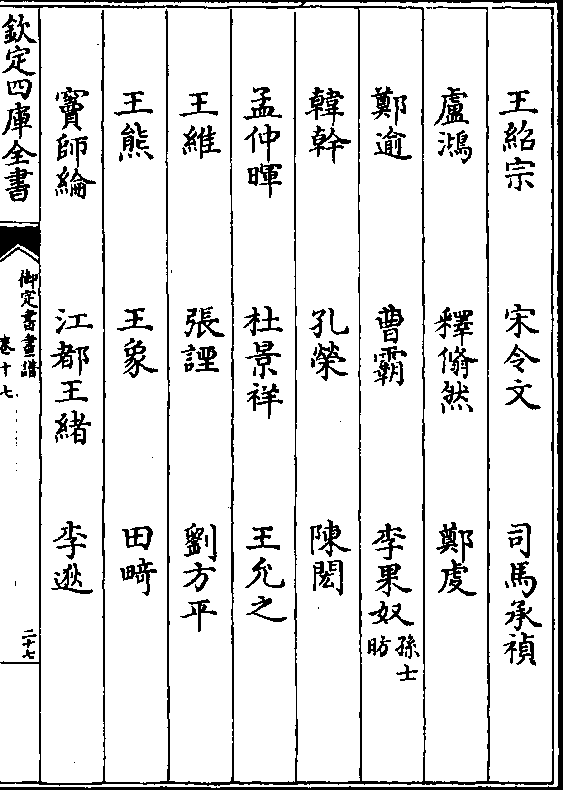 王紹宗 宋令文 司馬承禎
盧鴻 釋翛然 鄭虔
鄭逾 曹霸 李果奴孫士昉
韓幹 孔榮 陳閎
孟仲暉 杜景祥 王允之
王維 張諲 劉方平
王熊 王象 田琦
竇師綸 江都王緒 李逖
欽定四庫全書
御定書畫譜
卷十七
二十七